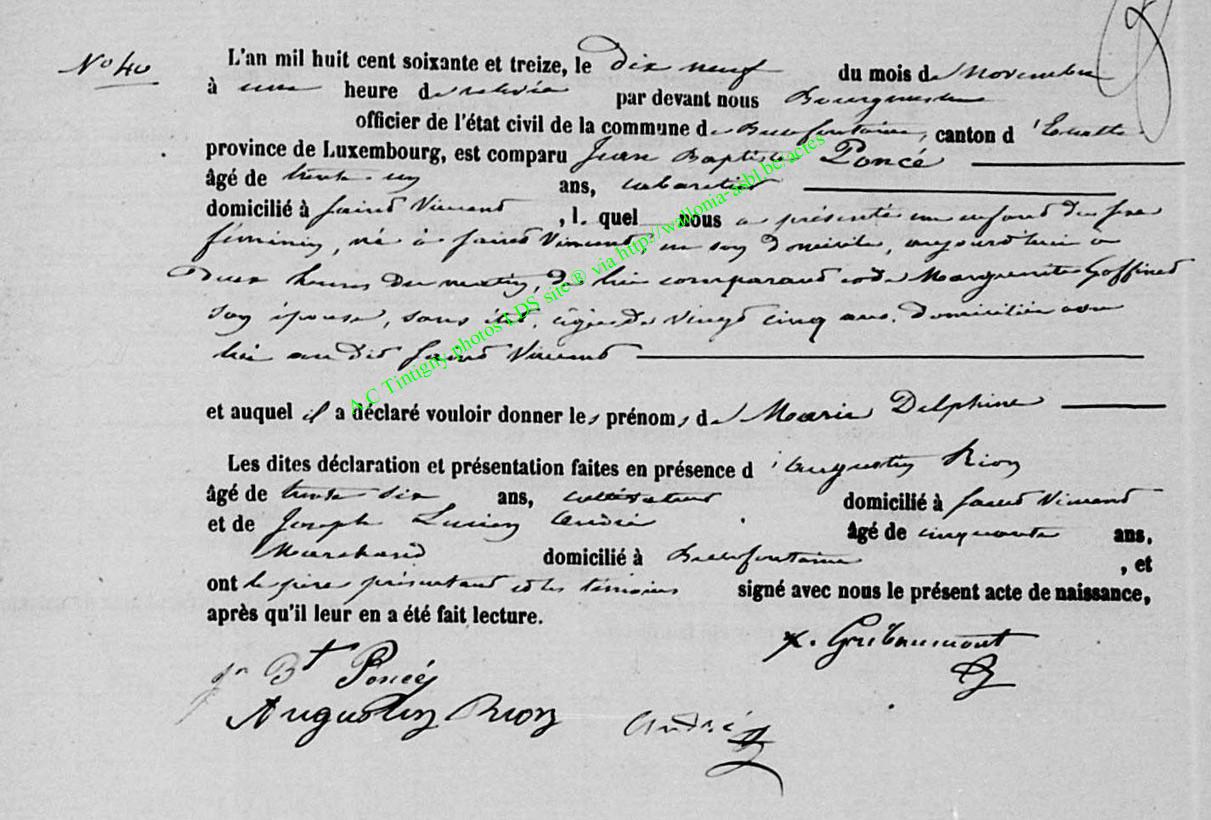 N° 40
L'an mil huit cent soixante et treize, le dix neuf du mois de Novembre
à une heure de relevée par devant nous Bourgmestre
officier de l'état civil de la commune de Bellefontaine, canton d'Etalle
province de Luxembourg, est comparu Jean Baptiste Poncé
âgé de trente un ans, cabaretier
domicilié à Saint Vincent, lequel nous a présenté un enfant du sexe
féminin, né à Saint Vincent, en son domicile, aujourd'hui à
deux heures du matin, de lui comparant et de Marguerite Goffinet
son épouse, sans état, agée de vingt cinq ans, domiciliée avec
lui au dit Saint Vincent
et auquel il a déclaré vouloir donner les prénoms de Marie Delphine
Les dites déclaration et présentation faites en présence d'Augustin Rion
âgé de trente six ans, cultivateur domicilié à Saint Vincent
et de Joseph Lucien André âgé de cinquante ans,
Marchand domicilié à Bellefontaine, et
ont le père présentant et les témoins signé avec nous le présent acte de naissance,
après qu'il leur en a été fait lecture.
Jn Bt Poncé
Augustin Rion
André
X. Gribaumont
A.C Tintigny photos LDS site ® via http://wallonia-asbl.be/actes